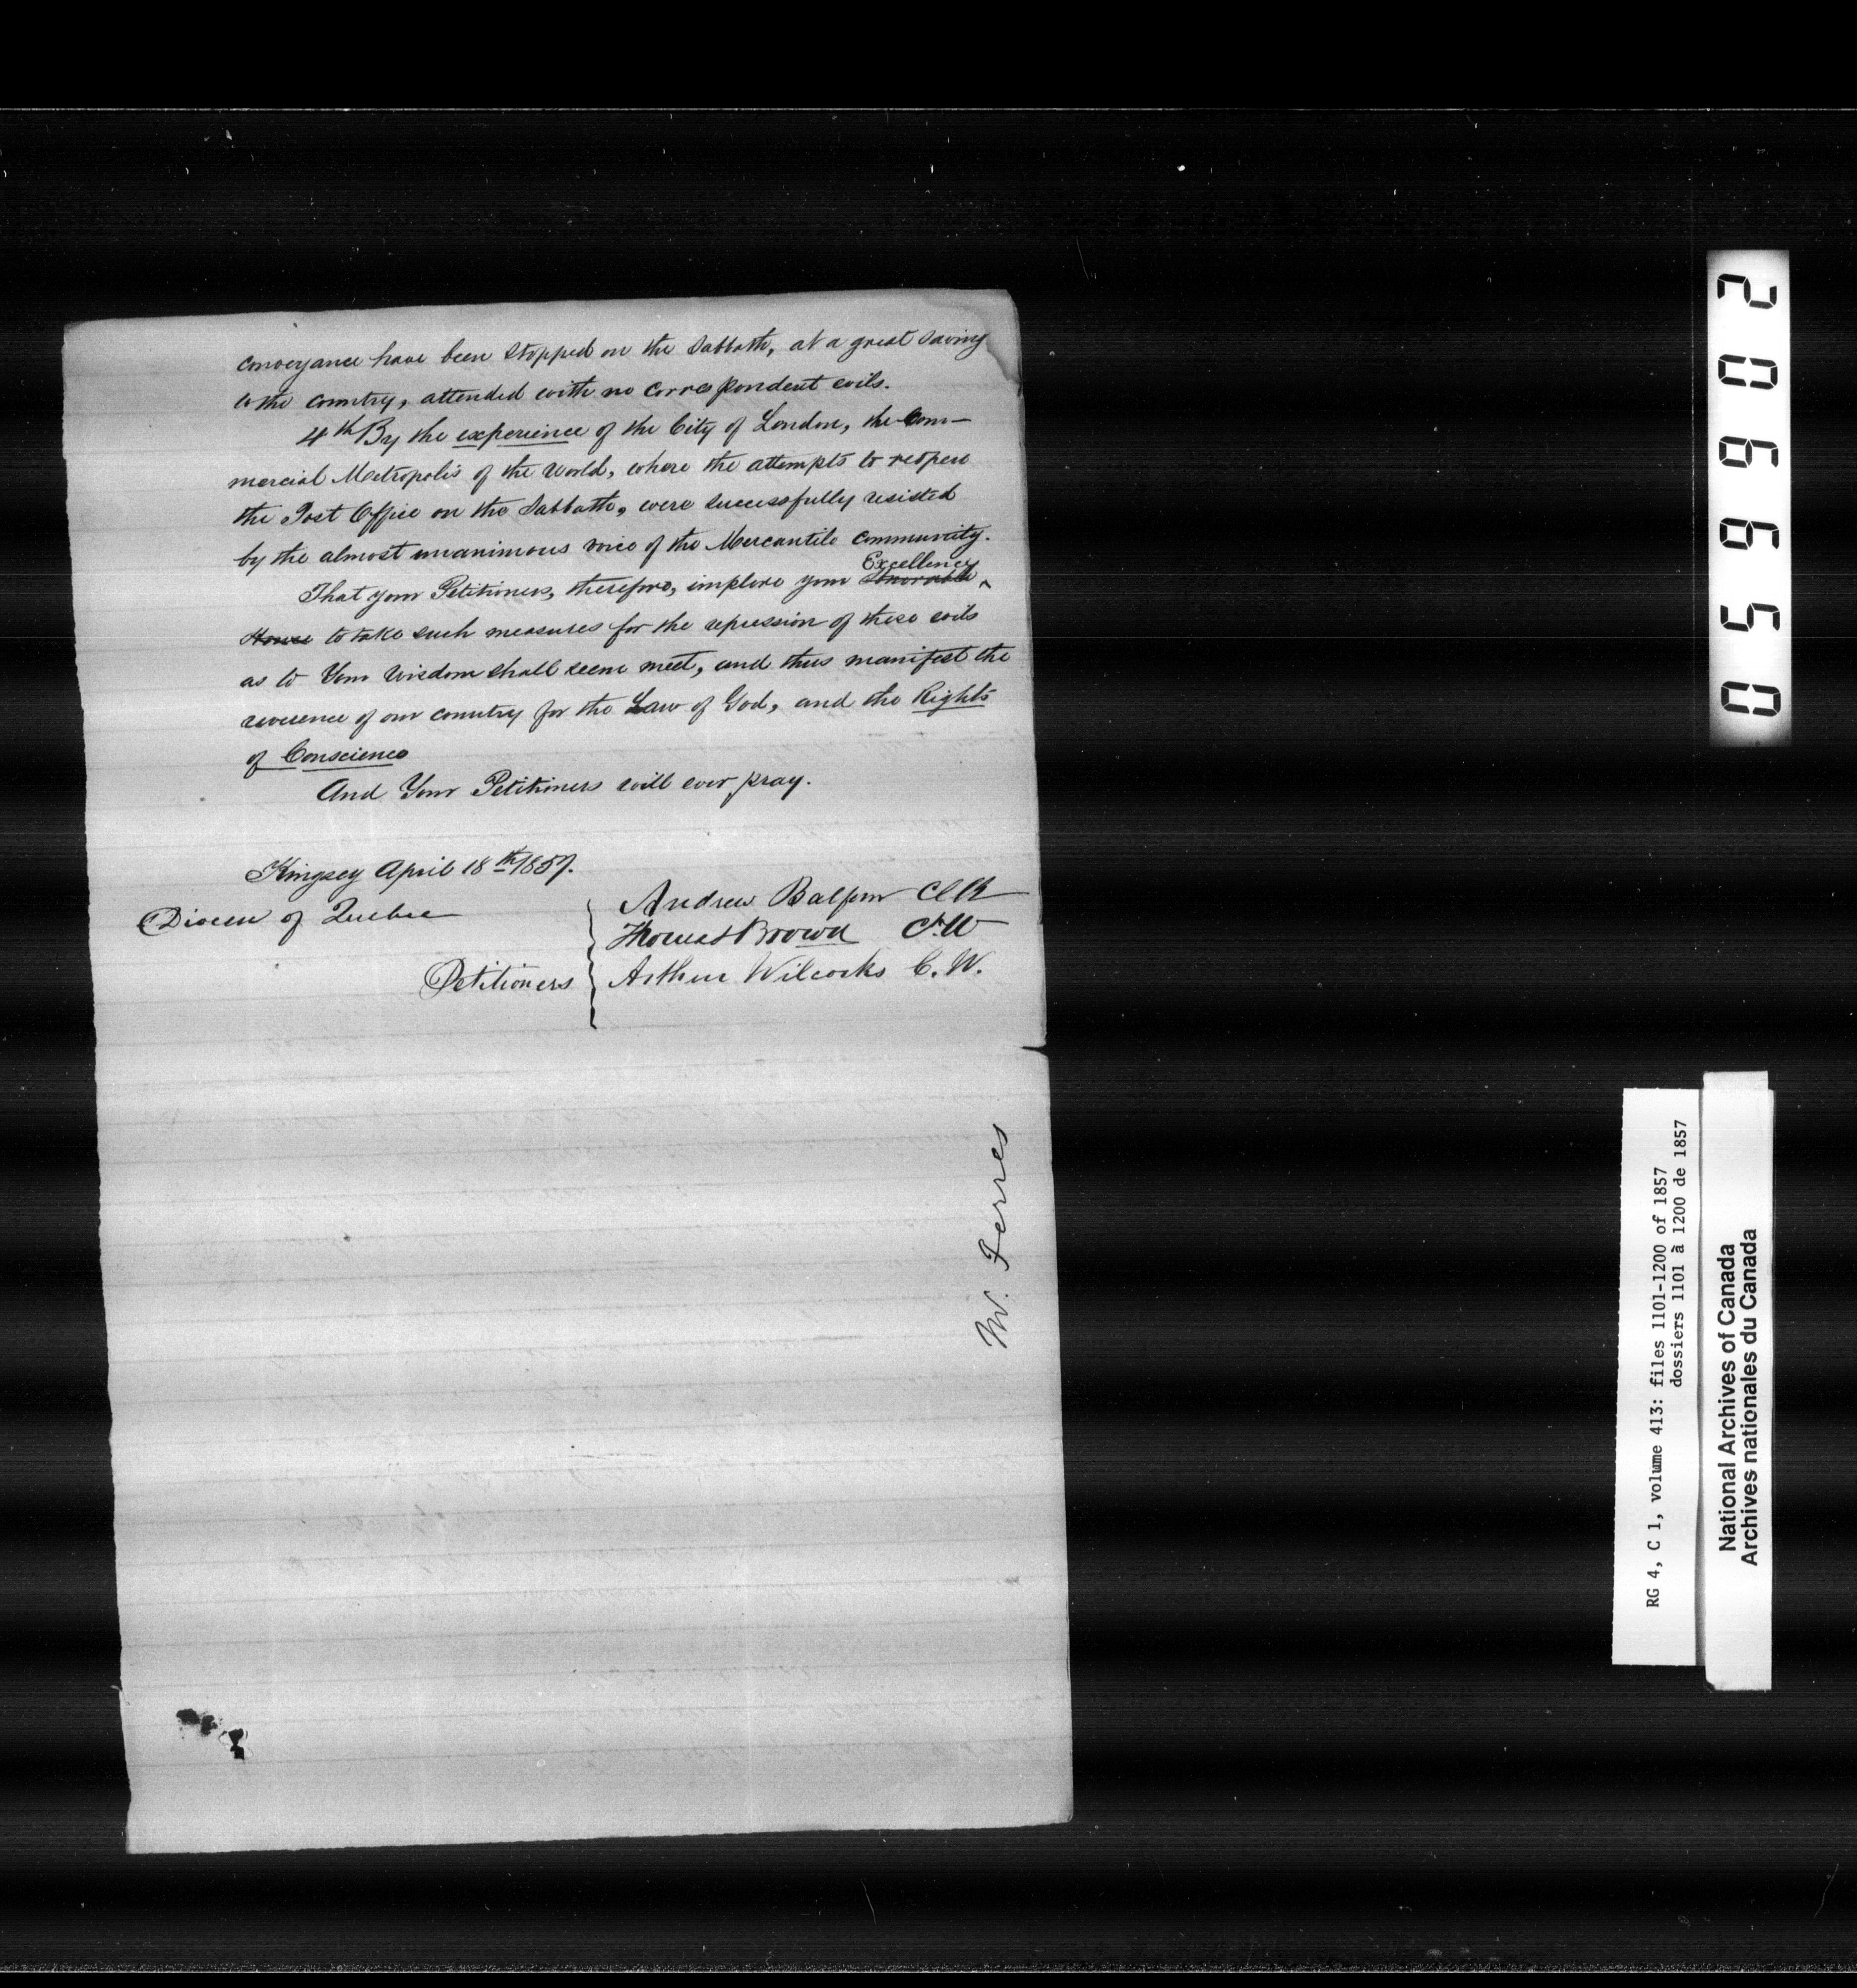 conveyance have been stopped on the Sabbath, at a great saving
to the country, attended with no correspondent evils.
4th By the experience of the City of London, the Com-
mercial Metropolis of the World, where the attempts to reopen
the Post Office on the Sabbath, were successfully resisted
by the almost unanimous voice of the Mercantile community.
Excellency
That your Petitioners, therefore, implore your Honorable ^
House to take such measures for the repression of these evils
as to Your Wisdom shall seem meet, and thus manifest the
reverence of our country for the Law of God, and the Rights
of Conscience
And Your Petitioners will ever pray.
Kingsey April 18th 1857.
Diocese of Quebec
Petitioners
Andrew Balfour Clk
Thomas Brown C.W
Arthur Wilcocks C. W.
M. Ferres
20665 0
RG 4, C 1, volume 413: files 1101-1200 of 1857
dossiers 1101 à 1200 de 1857
National Archives of Canada
Archives nationales du Canada